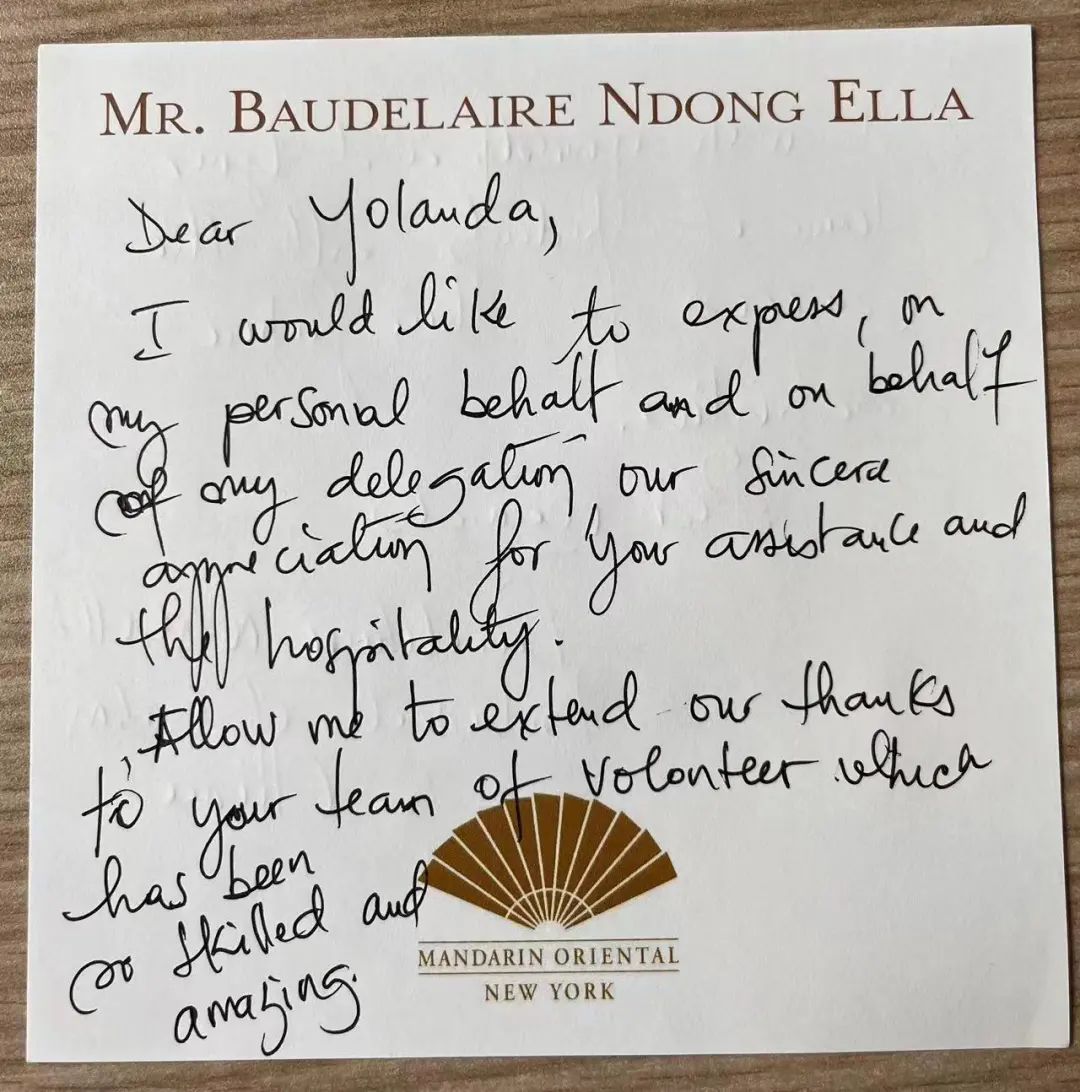 MR. BAUDELAIRE NDONG ELLA
Dear Yolanda,
I would like to express, on
my personal behalf and on behalf
of my delegation our sincere
appreciation for your assistance and
the hospitality.
Allow me to extend our thanks
to your team of volonteer which
has been
so skilled and
amazing.
MANDARIN ORIENTAL
NEW YORK